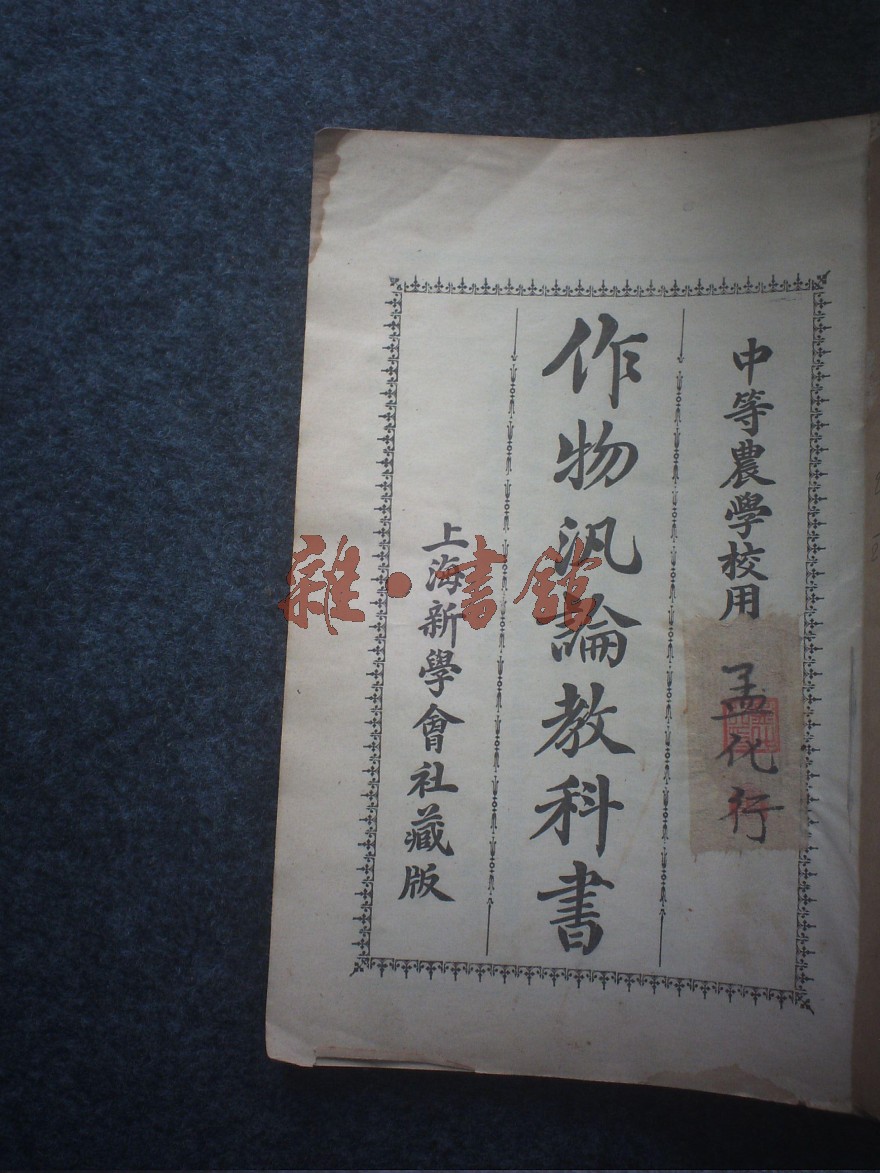 中等農學校用
孟化行
作物汎論教科書
上海新學會社藏版
雜·書館